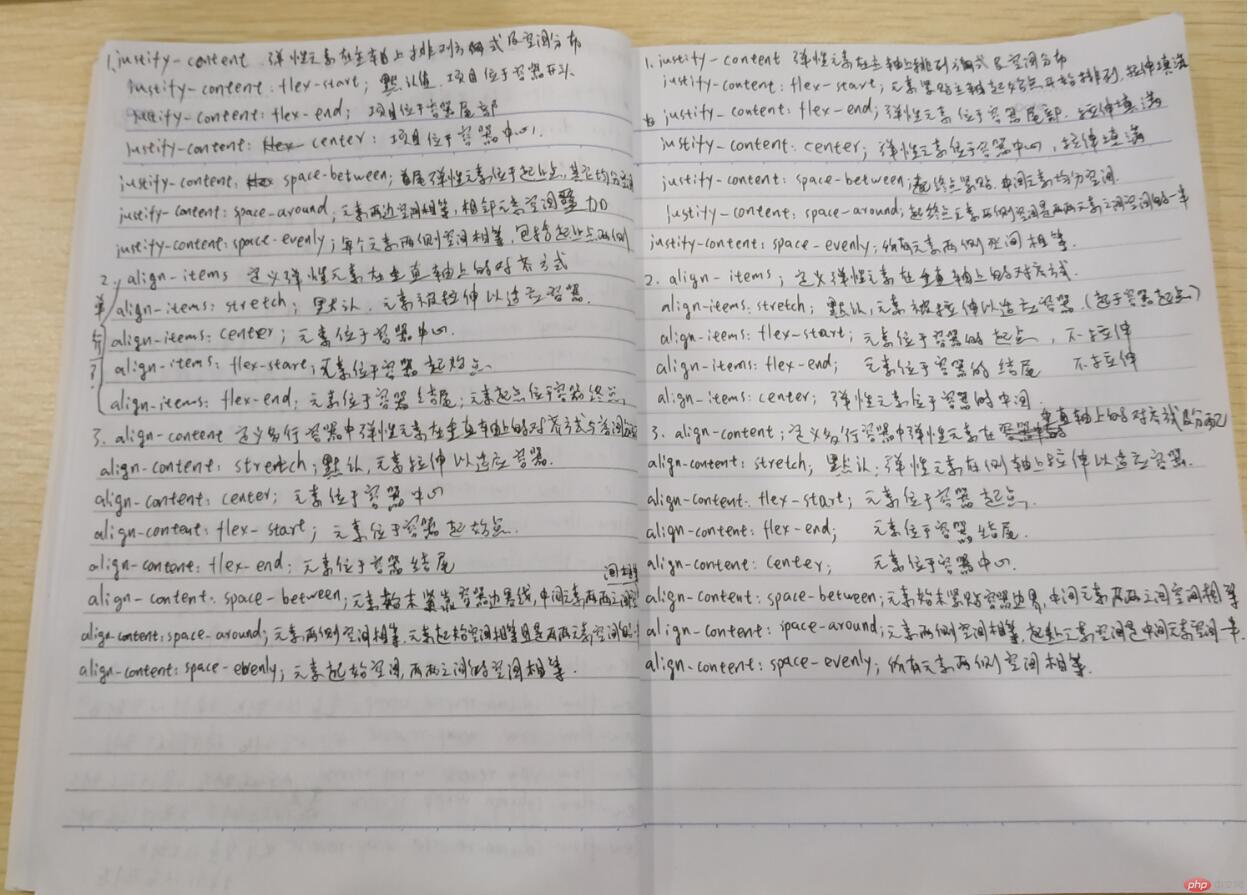 1. justify-content 弹性元素在主轴上排列方式及空间分布
justify-content: flex-start; 默认值、项目位于容器开头
justify-content: flex-end; 项目位于容器尾部
justify-content: center: 项目位于容器中心.
justify-content: space-between; 首尾弹性元素位于起止点,其它均分空间
justify-content: space-around, 元素两边空间相等,相邻元素空间叠加
justify-content: space-evenly; 每个元素两侧空间相等,包括起止点两侧
2. align-items 定义弹性元素在垂直轴上的对齐方式
单行?
align-items: stretch; 默认、元素被拉伸以适应容器.
align-items: center; 元素位于容器中心.
align-items: flex-start; 元素位于容器起始点、
align-items: flex-end; 元素位于容器结尾;元素起点位于容器终点,
3. align-content 定义多行容器中弹性元素在垂直轴上的对齐方式与空间
align-content: stretch; 默认,元素拉伸以适应容器.
align-content: center; 元素位于容器中心
align-content: flex-start; 元素位于容器起始点.
align-content: flex-end; 元素位于容器结尾
align-content: space-between; 元素始末紧靠容器边界线,中间元素两两之间空间相等
align-content: space-around; 元素两侧空间相等,元素起始空间相等且是两两元素空间的
align-content: space-evenly; 元素起始空间,两两之间的空间相等.
1. justify-content 弹性元素在主轴上排列方式及空间分布
justify-content: flex-start; 元素紧贴主轴起始点开始排列,拉伸填满
justify-content: flex-end; 弹性元素位于容器尾部.拉伸填满
justify-content: center; 弹性元素位于容器中心,拉伸填满
justify-content: space-between; 起终点紧贴,中间元素均分空间.
justify-content: space-around; 起终点元素两侧空间是两两元素之间空间的一半
justify-content: space-evenly; 所有元素两侧空间相等.
2. align-items; 定义弹性元素在垂直轴上的对齐方式.
align-items: stretch; 默认,元素被拉伸以适应容器.(起于容器起点)
align-items: flex-start; 元素位于容器的起点,不拉伸
align-items: flex-end; 元素位于容器的结尾 不拉伸
align-items: center; 弹性元素位于容器的中间.
3. align-content; 定义多行容器中弹性元素在垂直轴上的对齐方式及分配
align-content: stretch; 默认:弹性元素在侧轴上拉伸以适应容器.
align-content: flex-start; 元素位于容器起点.
align-content: flex-end; 元素位于容器结尾.
align-content: center; 元素位于容器中心.
align-content: space-between; 元素始末紧贴容器边界,中间元素两两之间空间相等
align-content: space-around; 元素两侧空间相等,起处元素空间是中间元素空间一半.
align-content: space-evenly; 所有元素两侧空间相等.
php